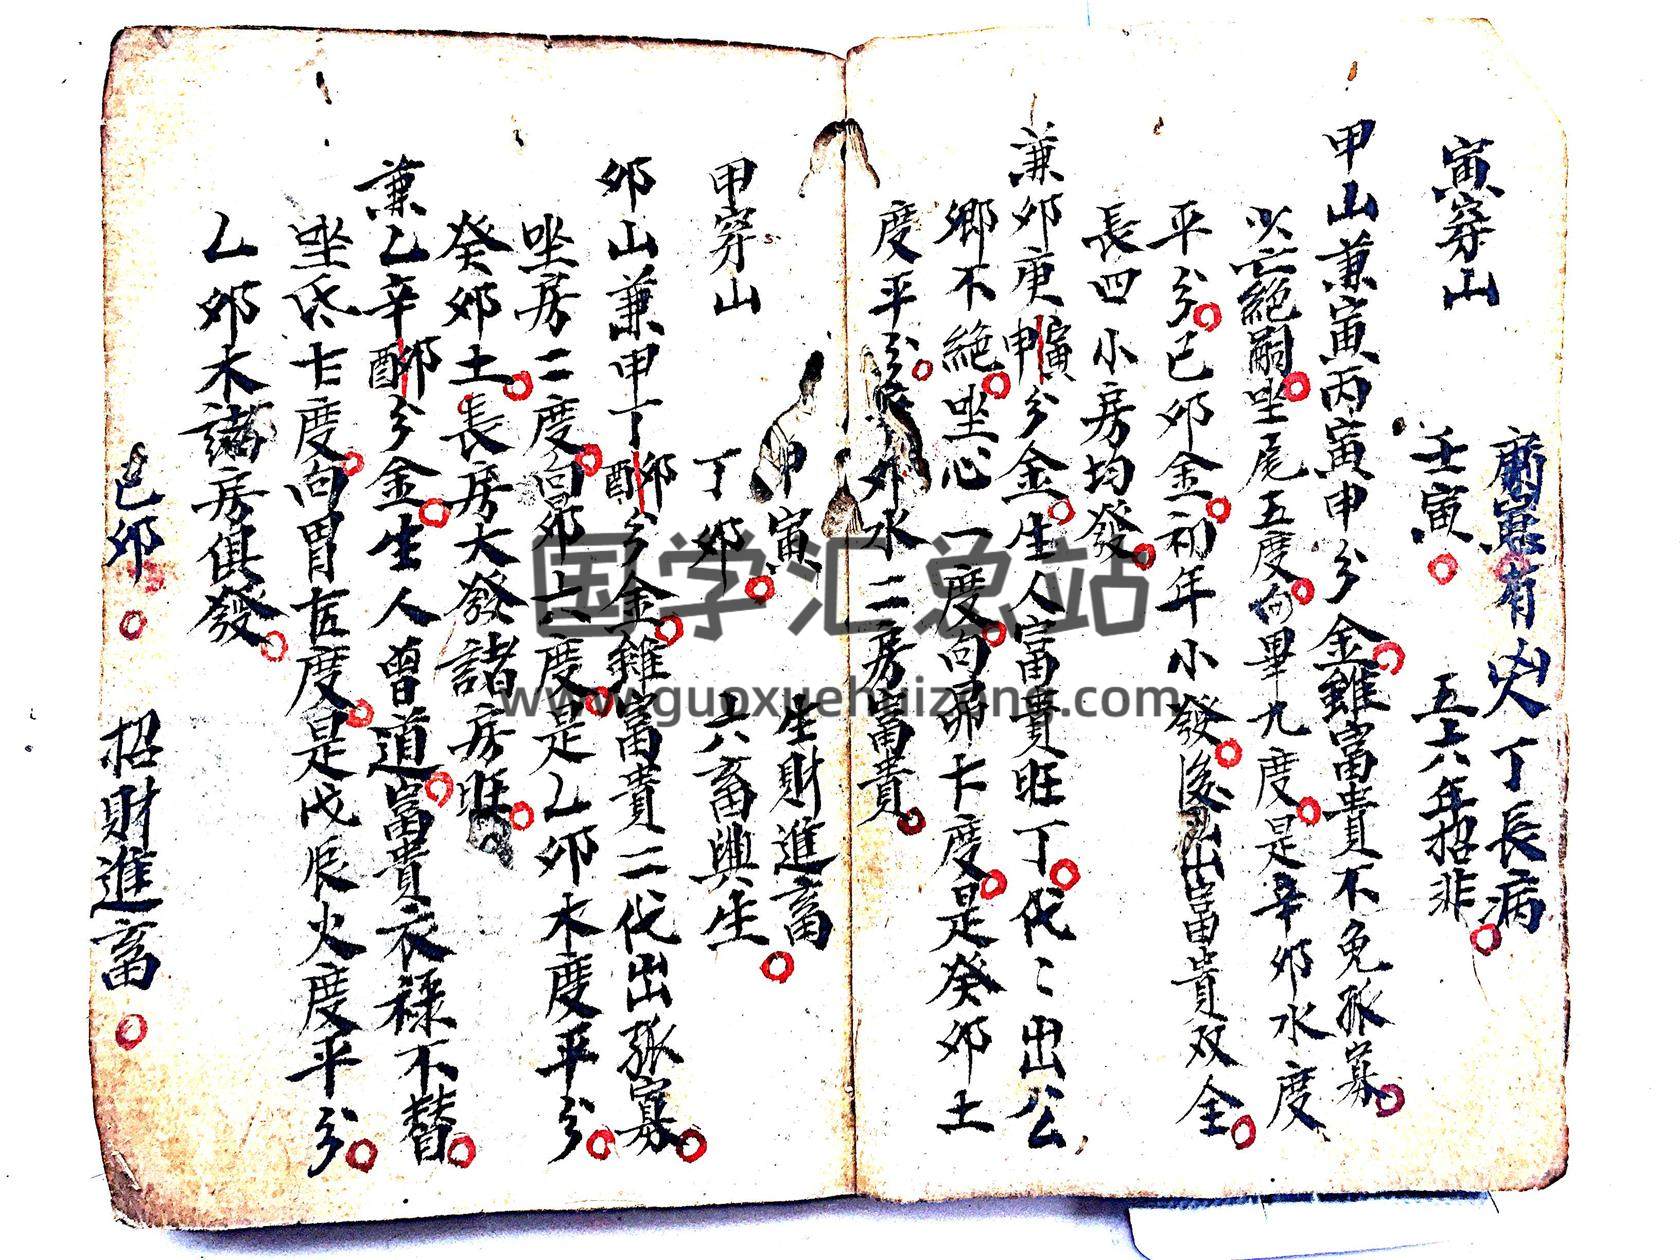 寅穿山
有火丁長病
壬寅
五六年招非
甲山兼寅丙寅申分金雖富貴不免孤寡
必絕嗣坐尾五度向畢九度是辛卯水度
平分己卯金初年小發後出富貴双全
長四小房均發
兼卯庚寅申分金生人富貴旺丁代〻出公
鄉不絕坐心一度向昴七度是癸卯土
度平分卯水二房富貴
甲寅
生財進畜
甲穿山
丁卯
六畜興生
卯山兼甲丁卯酉分金雖富貴二代出孤寡
坐房二度向昴六度是乙卯木度平分
癸卯土長房大發諸房旺
兼乙辛卯酉分金生人曾道富貴衣祿不替
坐氐七度向胃五度是戊辰火度平分
乙卯木諸房俱發
己卯
招財進畜
国学汇总站
www.guoxuehuizong.com